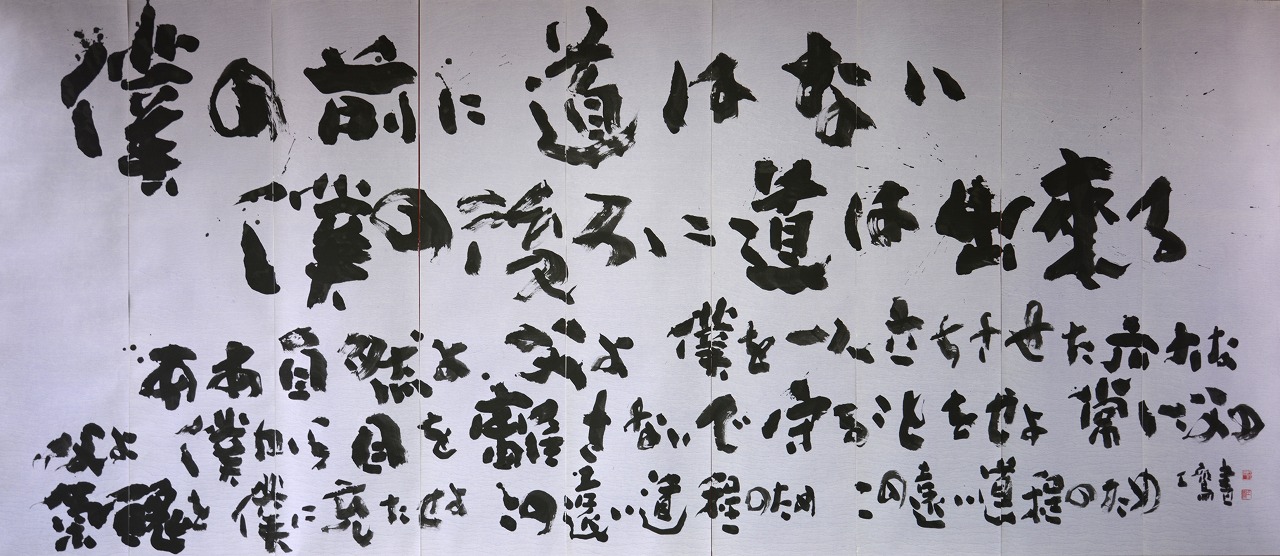 僕の前に道はない
僕の後ろに道は出来る
ああ自然よ 父よ 僕を一人立ちさせた広大な
父よ 僕から目を離さないで守ることをせよ 常に父の
氣魄を僕に充たせよ この遠い道程のため この遠い道程のため